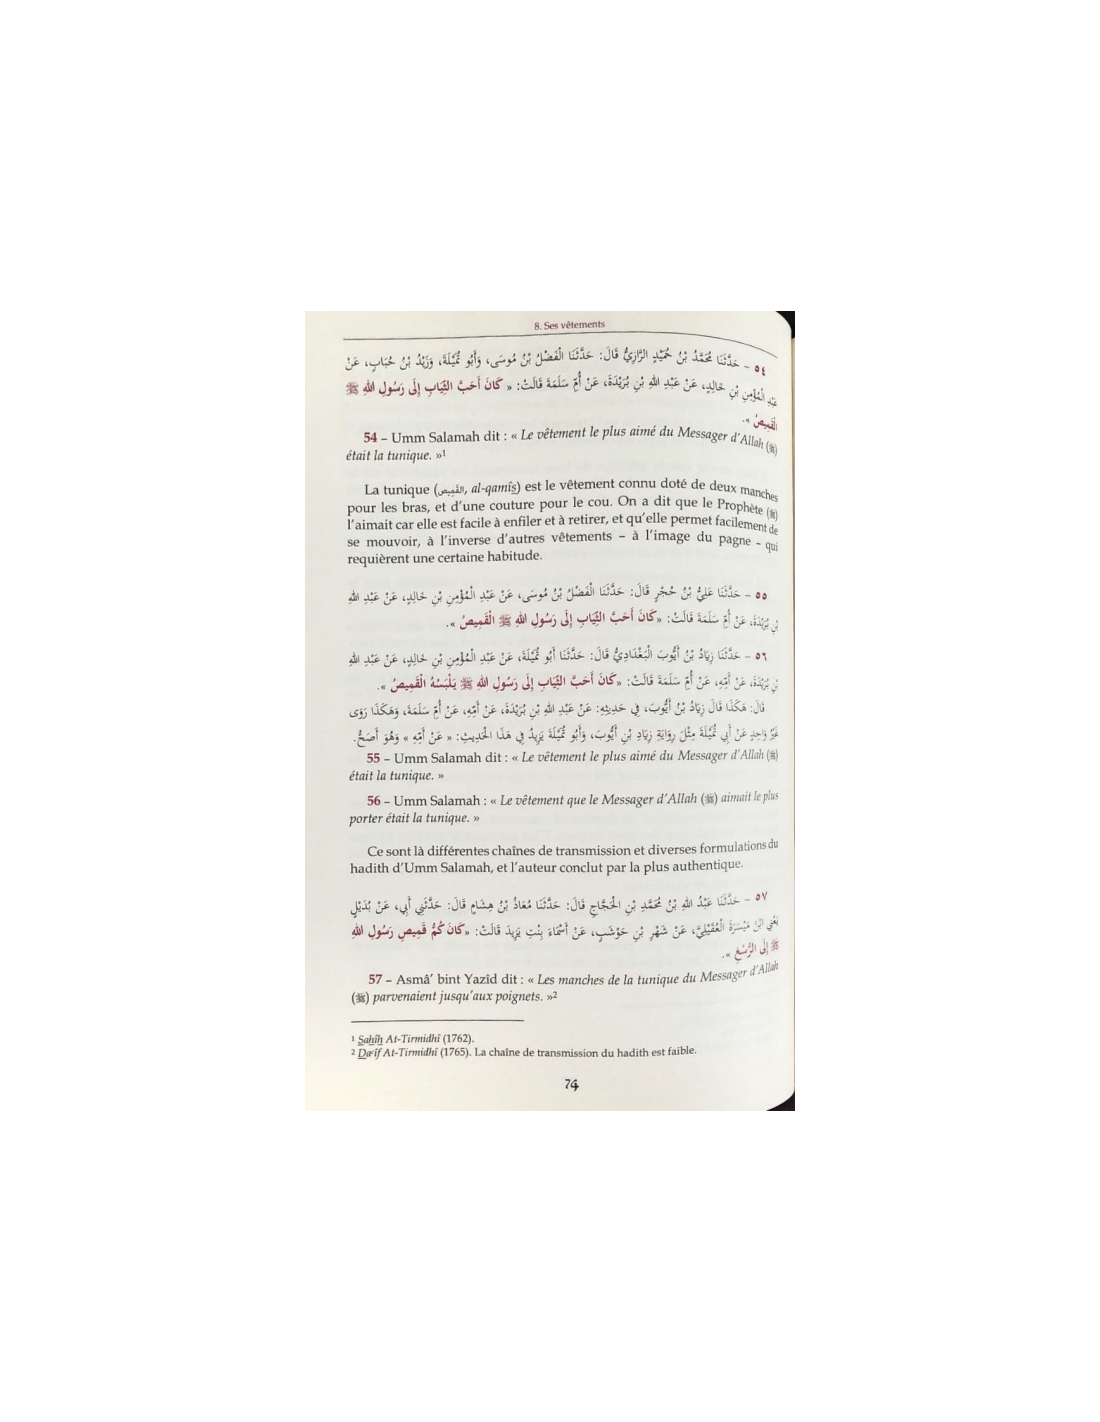 8. Ses vêtements
٥٤ – حَدَّثَنَا مُحَمَّدُ بْنُ حُمَيْدٍ الرَّازِيُّ قَالَ: حَدَّثَنَا الْفَضْلُ بْنُ مُوسَى، وَأَبُو تُمَيْلَةَ، وَزَيْدُ بْنُ حُبَابٍ، عَنْ
عَبْدِ الْمُؤْمِنِ بْنِ خَالِدٍ، عَنْ عَبْدِ اللهِ بْنِ بُرَيْدَةَ، عَنْ أُمِّ سَلَمَةَ قَالَتْ: « كَانَ أَحَبَّ الثِّيَابِ إِلَى رَسُولِ اللهِ ﷺ
الْقَمِيصُ ».
54 – Umm Salamah dit : « Le vêtement le plus aimé du Messager d'Allah (ﷺ)
était la tunique. »¹
La tunique (القَمِيص, al-qamîs) est le vêtement connu doté de deux manches
pour les bras, et d'une couture pour le cou. On a dit que le Prophète (ﷺ)
l'aimait car elle est facile à enfiler et à retirer, et qu'elle permet facilement de
se mouvoir, à l'inverse d'autres vêtements – à l'image du pagne – qui
requièrent une certaine habitude.
٥٥ – حَدَّثَنَا عَلِيُّ بْنُ حُجْرٍ قَالَ: حَدَّثَنَا الْفَضْلُ بْنُ مُوسَى، عَنْ عَبْدِ الْمُؤْمِنِ بْنِ خَالِدٍ، عَنْ عَبْدِ اللهِ
بْنِ بُرَيْدَةَ، عَنْ أُمِّ سَلَمَةَ قَالَتْ: «كَانَ أَحَبَّ الثِّيَابِ إِلَى رَسُولِ اللهِ ﷺ الْقَمِيصُ ».
٥٦ – حَدَّثَنَا زِيَادُ بْنُ أَيُّوبَ الْبَغْدَادِيُّ قَالَ: حَدَّثَنَا أَبُو تُمَيْلَةَ، عَنْ عَبْدِ الْمُؤْمِنِ بْنِ خَالِدٍ، عَنْ عَبْدِ اللهِ
بْنِ بُرَيْدَةَ، عَنْ أُمِّهِ، عَنْ أُمِّ سَلَمَةَ قَالَتْ: «كَانَ أَحَبَّ الثِّيَابِ إِلَى رَسُولِ اللهِ ﷺ يَلْبَسُهُ الْقَمِيصُ ».
قَالَ: هَكَذَا قَالَ زِيَادُ بْنُ أَيُّوبَ، فِي حَدِيثِهِ: عَنْ عَبْدِ اللهِ بْنِ بُرَيْدَةَ، عَنْ أُمِّهِ، عَنْ أُمِّ سَلَمَةَ، وَهَكَذَا رَوَى
غَيْرُ وَاحِدٍ عَنْ أَبِي تُمَيْلَةَ مِثْلَ رِوَايَةِ زِيَادِ بْنِ أَيُّوبَ، وَأَبُو تُمَيْلَةَ يَزِيدُ فِي هَذَا الْحَدِيثِ: « عَنْ أُمِّهِ » وَهُوَ أَصَحُّ.
55 – Umm Salamah dit : « Le vêtement le plus aimé du Messager d'Allah (ﷺ)
était la tunique. »
56 – Umm Salamah : « Le vêtement que le Messager d'Allah (ﷺ) aimait le plus
porter était la tunique. »
Ce sont là différentes chaînes de transmission et diverses formulations du
hadith d'Umm Salamah, et l'auteur conclut par la plus authentique.
٥٧ – حَدَّثَنَا عَبْدُ اللهِ بْنُ مُحَمَّدِ بْنِ الْحَجَّاجِ قَالَ: حَدَّثَنَا مُعَاذُ بْنُ هِشَامٍ قَالَ: حَدَّثَنِي أَبِي، عَنْ بُدَيْلٍ
يَعْنِي ابْنَ مَيْسَرَةَ الْعُقَيْلِيَّ، عَنْ شَهْرِ بْنِ حَوْشَبٍ، عَنْ أَسْمَاءَ بِنْتِ يَزِيدَ قَالَتْ: «كَانَ كُمُّ قَمِيصِ رَسُولِ اللهِ
ﷺ إِلَى الرُّسْغِ ».
57 – Asmâ' bint Yazîd dit : « Les manches de la tunique du Messager d'Allah
(ﷺ) parvenaient jusqu'aux poignets. »²
¹ Sahîh At-Tirmidhî (1762).
² Da'îf At-Tirmidhî (1765). La chaîne de transmission du hadith est faible.